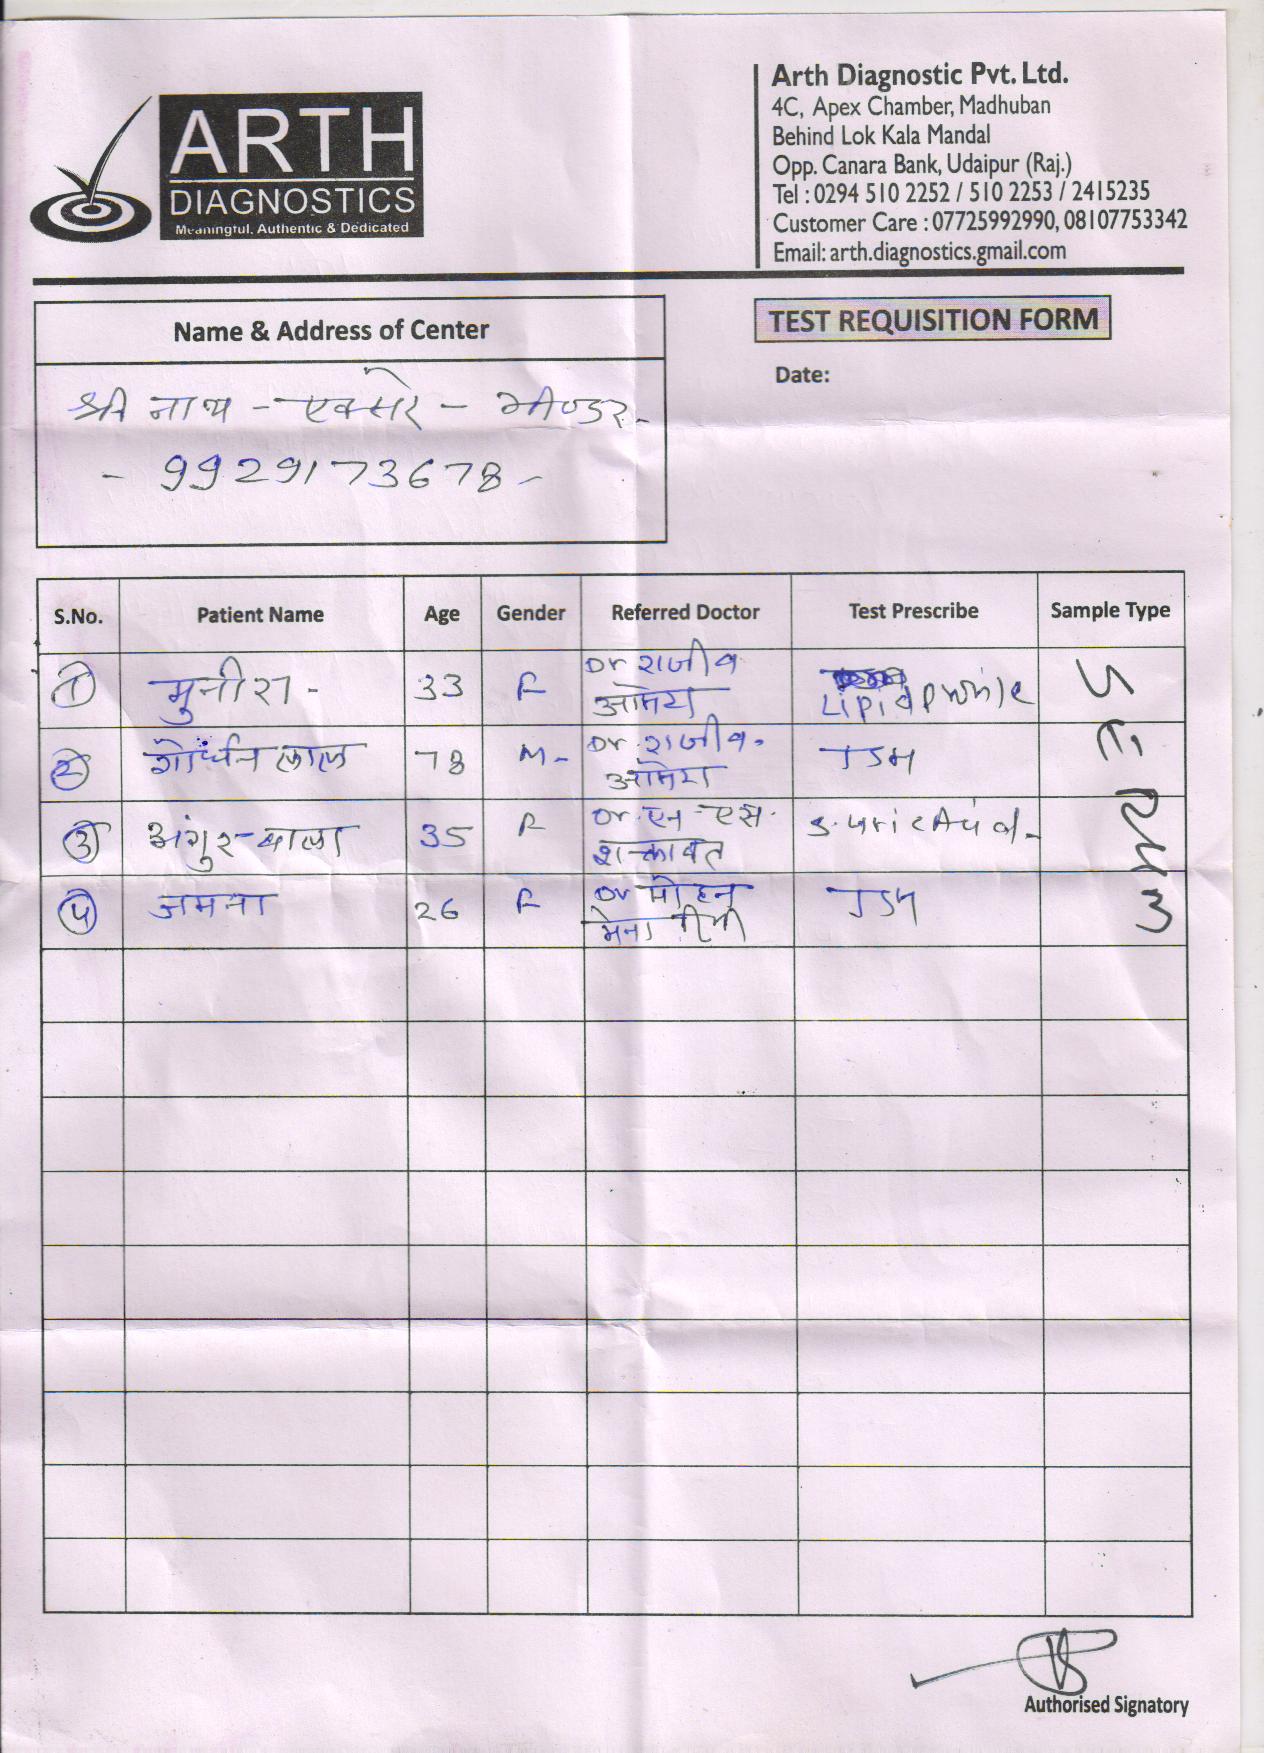 ARTH
DIAGNOSTICS
Meaningful, Authentic & Dedicated
Arth Diagnostic Pvt. Ltd.
4C, Apex Chamber, Madhuban
Behind Lok Kala Mandal
Opp. Canara Bank, Udaipur (Raj.)
Tel : 0294 510 2252 / 510 2253 / 2415235
Customer Care : 07725992990, 08107753342
Email: arth.diagnostics.gmail.com
Name & Address of Center
TEST REQUISITION FORM
Date:
श्री नाथ - एक्सरे - भीण्डर -
- 9929173678 -
S.No. Patient Name Age Gender Referred Doctor Test Prescribe Sample Type
1 मुनीरा - 33 F Dr राजीव आमेरा Lipid profile
2 गोर्धन लाल 78 M - Dr. राजीव. आमेरा TSH
3 अंगुर - बाला 35 F Dr. एन - एस. शक्तावत S. uric Acid -
4 जमना 26 F Dr मोहन TSH
SERUM
Authorised Signatory